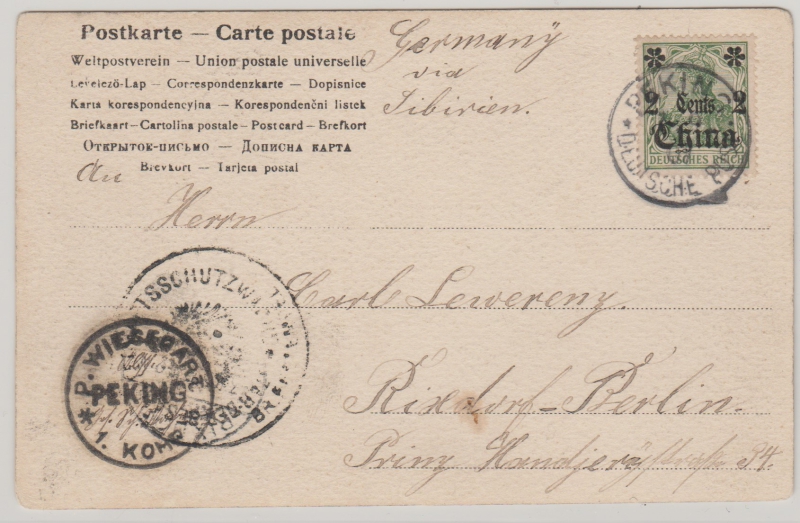 Postkarte — Carte postale
Weltpostverein — Union postale universelle
Levelező-Lap — Correspondenzkarte — Dopisnice
Karta korespondencyjna — Korespondenční listek
Briefkaart—Cartolina postale—Postcard—Brefkort
Открытое-письмо — Дописна карта
Brevkort — Tarjeta postal
Germany
via
Sibirien.
2 Cents 2
China
DEUTSCHES REICH
PEKING
DEUTSCHE POST
An
Herrn
Carl Lewerenz.
Rixdorf-Berlin.
Prinz Handjerystraße 34
P. WIESEGART
PEKING
1. KOMP